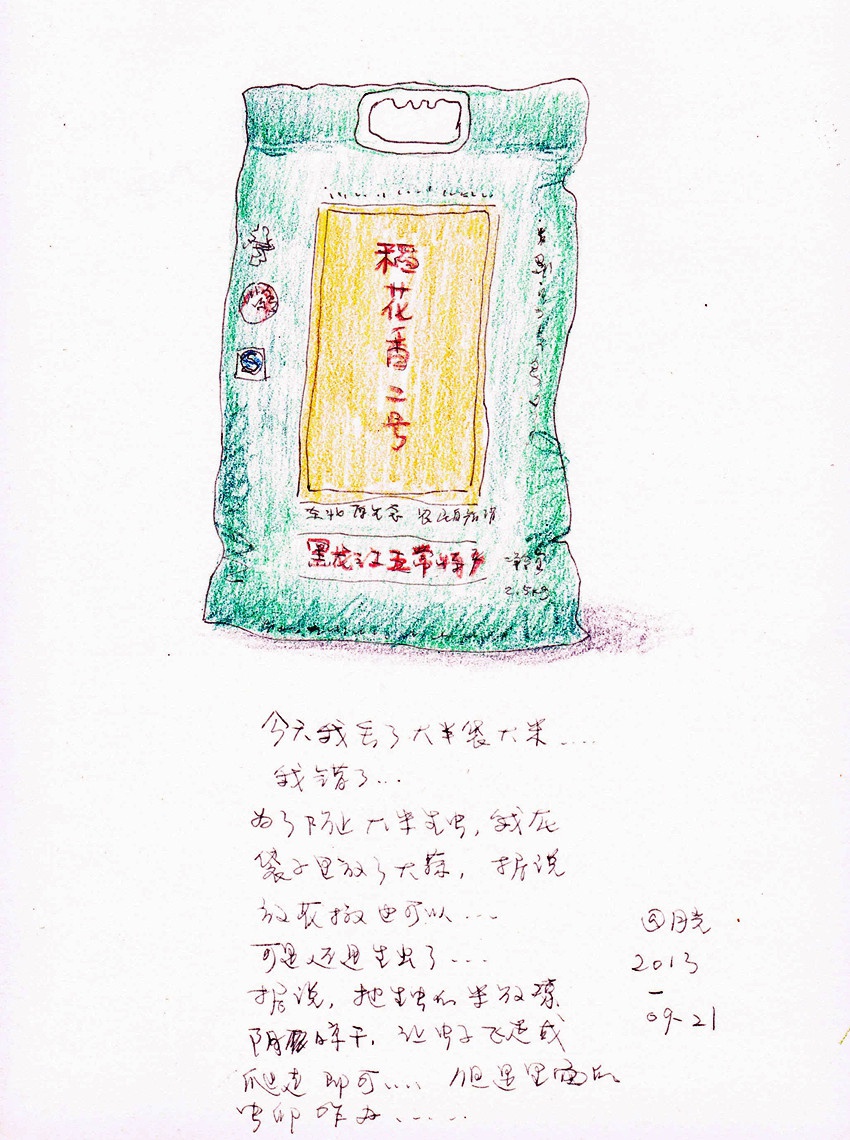 稻花香二号
黑龙江五常特产
净含
2.5kg
今天我丢了大半袋大米....
我错了...
为了防止大米生虫,我在
袋子里放了大蒜,据说
放花椒也可以...
可是还是生虫了...
据说,把生虫的米放凉
阴晾干,让虫子飞走或
爬走即可.... 但是里面的
虫卵咋办.....
@月光
2013
-
09-21